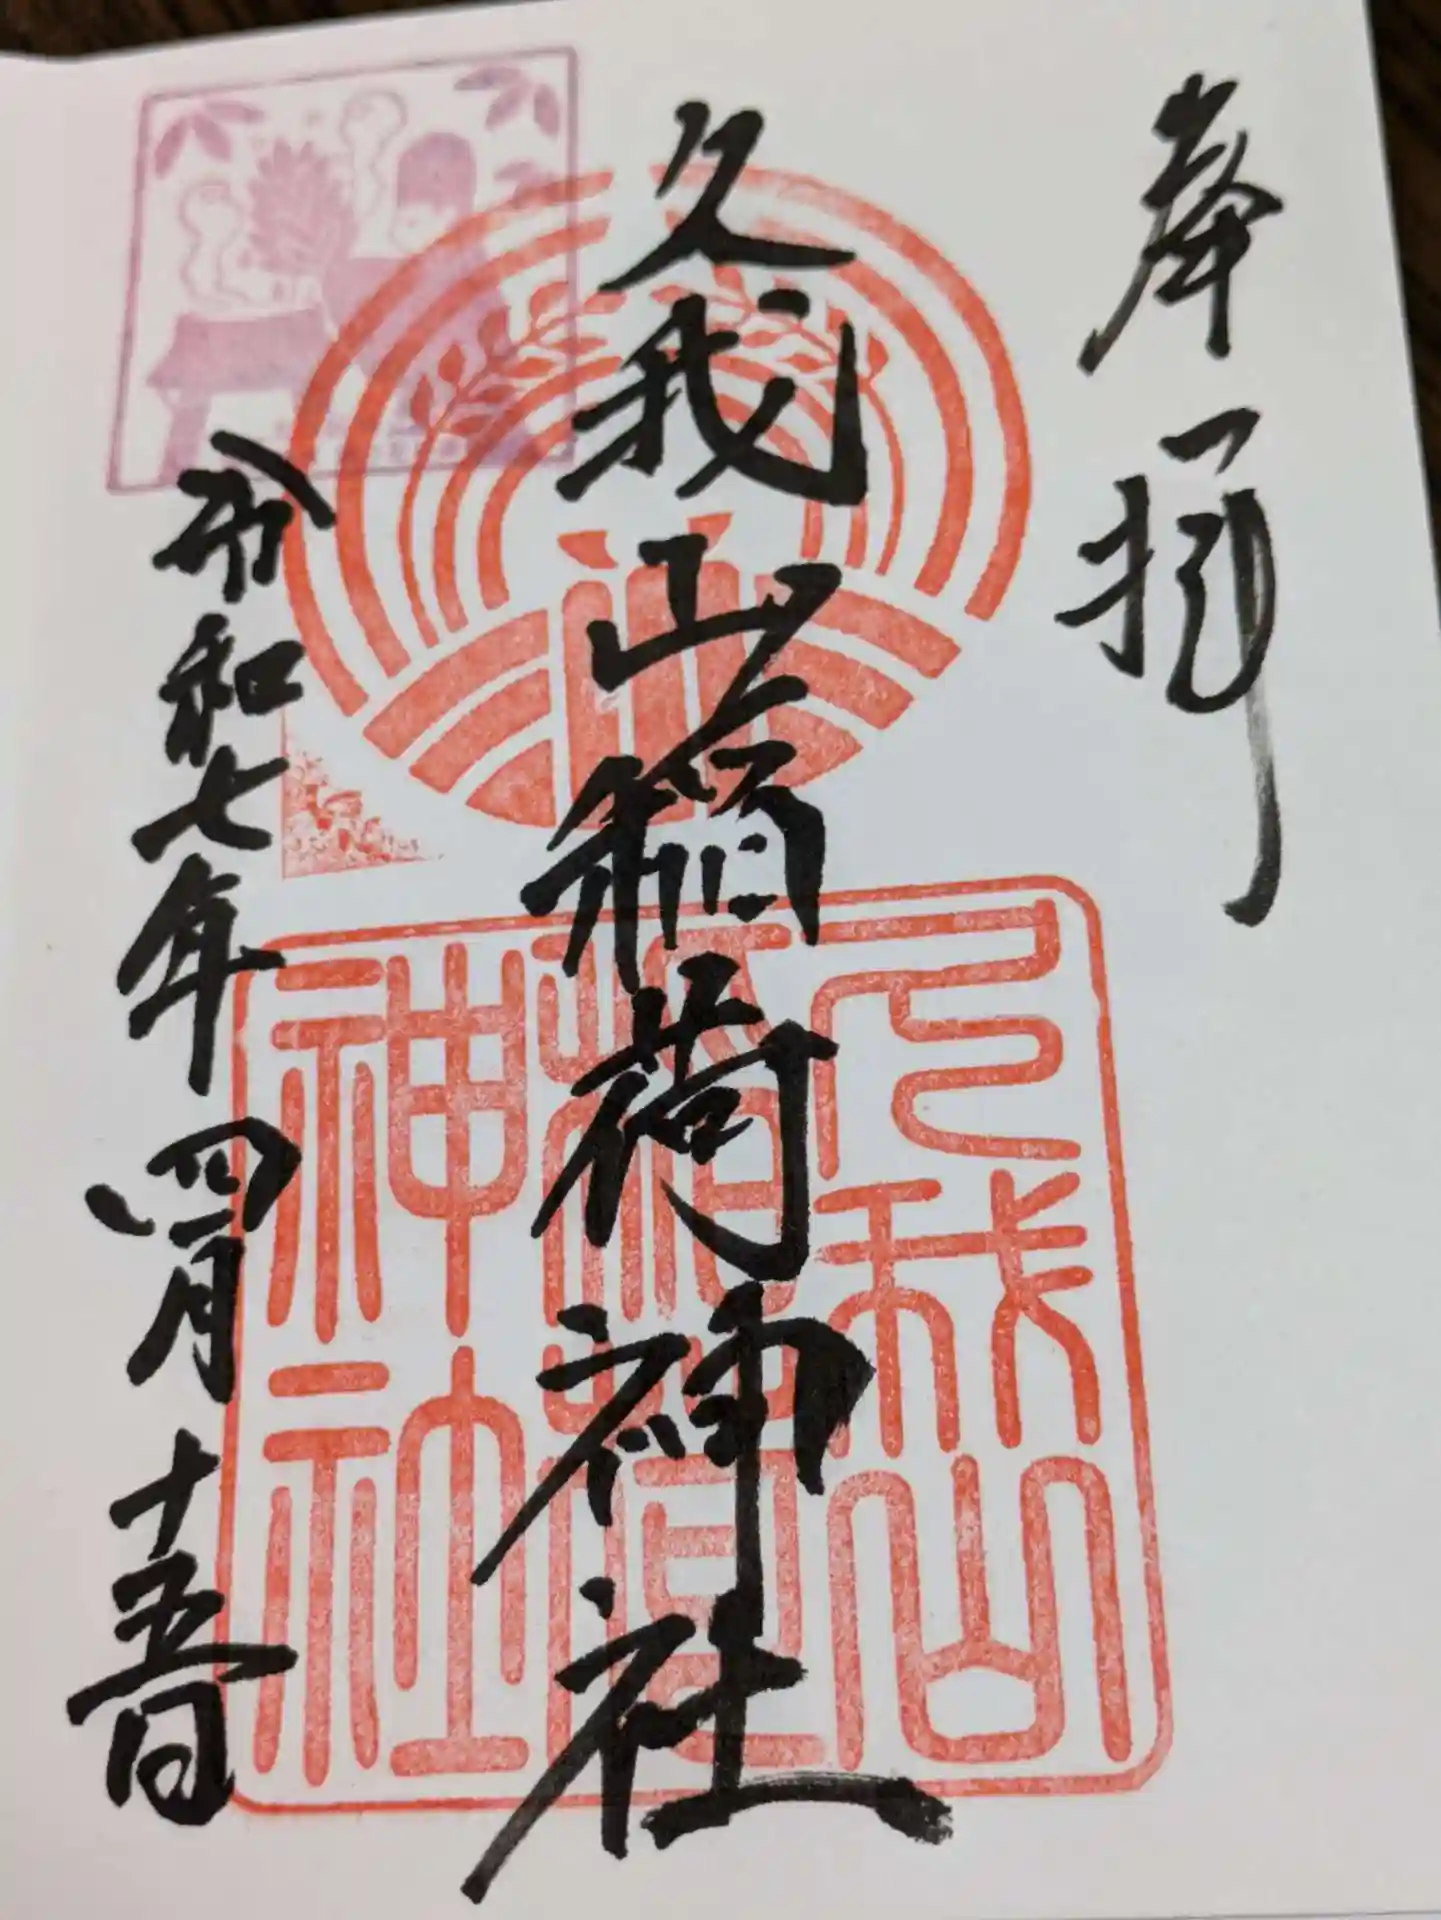 奉拝
久我山稲荷神社
令和七年四月十五日
久我山
稲荷
神社